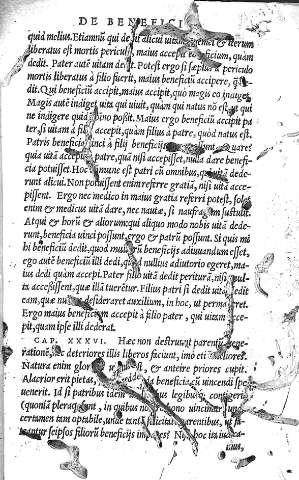 DE BENEFICI
quid melius. Etiamnũ qui de sit alicui vitam iterum
liberatus est mortis periculo, maius accepit beneficium, quàm
dedit. Pater autẽ vitam dedit. Potest ergo si sæpius à periculo
mortis liberatus à filio fuerit, maius beneficiũ accipere, quàm
dedit. Qui beneficiũ accipit, maius accipit, quo magis eo indiget.
Magis autẽ indiget vita qui vivit, quàm qui natus nõ est, ut qui
ne indigere quidem possit. Maius ergo beneficiũ accipit pa
ter, si vitam à filio accepit, quàm filius à patre, quòd natus est.
Patris beneficia vinci à filij beneficijs
quia vitã accepit à patre, quã nisi accepisset, nulla dare benefi-
cia potuisset. Hoc commune est patri cũ omnibus, qui vitã dede-
runt alicui. Non potuissent enim referre gratiã, nisi vitã acce-
pissent. Ergo nec medico in maius gratia referri potest, solet
enim & medicus vitã dare, nec nautæ, si naufragum sustulit.
Atqui & horũ & aliorum: qui aliquo modo nobis vitã dede-
runt, beneficia vinci possunt, ergo & patrũ possunt. Si quis mi
hi beneficiũ dedit, quod multorũ beneficijs adiuvandum esset,
ego autẽ beneficiũ illi dedi, quod nullius adiutorio egeret, ma-
ius dedi quàm accepi. Pater filio vitã dedit periturã, nisi
accessissent multa, quæ illã tuerẽtur. Filius patri si dedit vitã, dedit
eam, quæ nullius desideraret auxilium, in hoc, ut permaneret.
Ergo maius beneficium accepit à filio pater, qui vitam acce-
pit, quàm ipse illi dederat.
CAP. XXXVI. Hæc non destruunt parentũ vene-
rationẽ, nec deteriores illis liberos faciunt, imò etiã meliores.
Natura enim gloriosa est, & anteire priores cupit.
Alacrior erit pietas, si beneficia, cũ vincendi spe
venerit. Id si patribus legibus contigerit
(quoniã pleraque sunt, in quibus nobis vincimur)
certamen tam optabile, unde tanta felicitas parentibus, ut fa
teantur seipsos filiorũ beneficijs impares? Nisi hoc ita iudica-
mus,